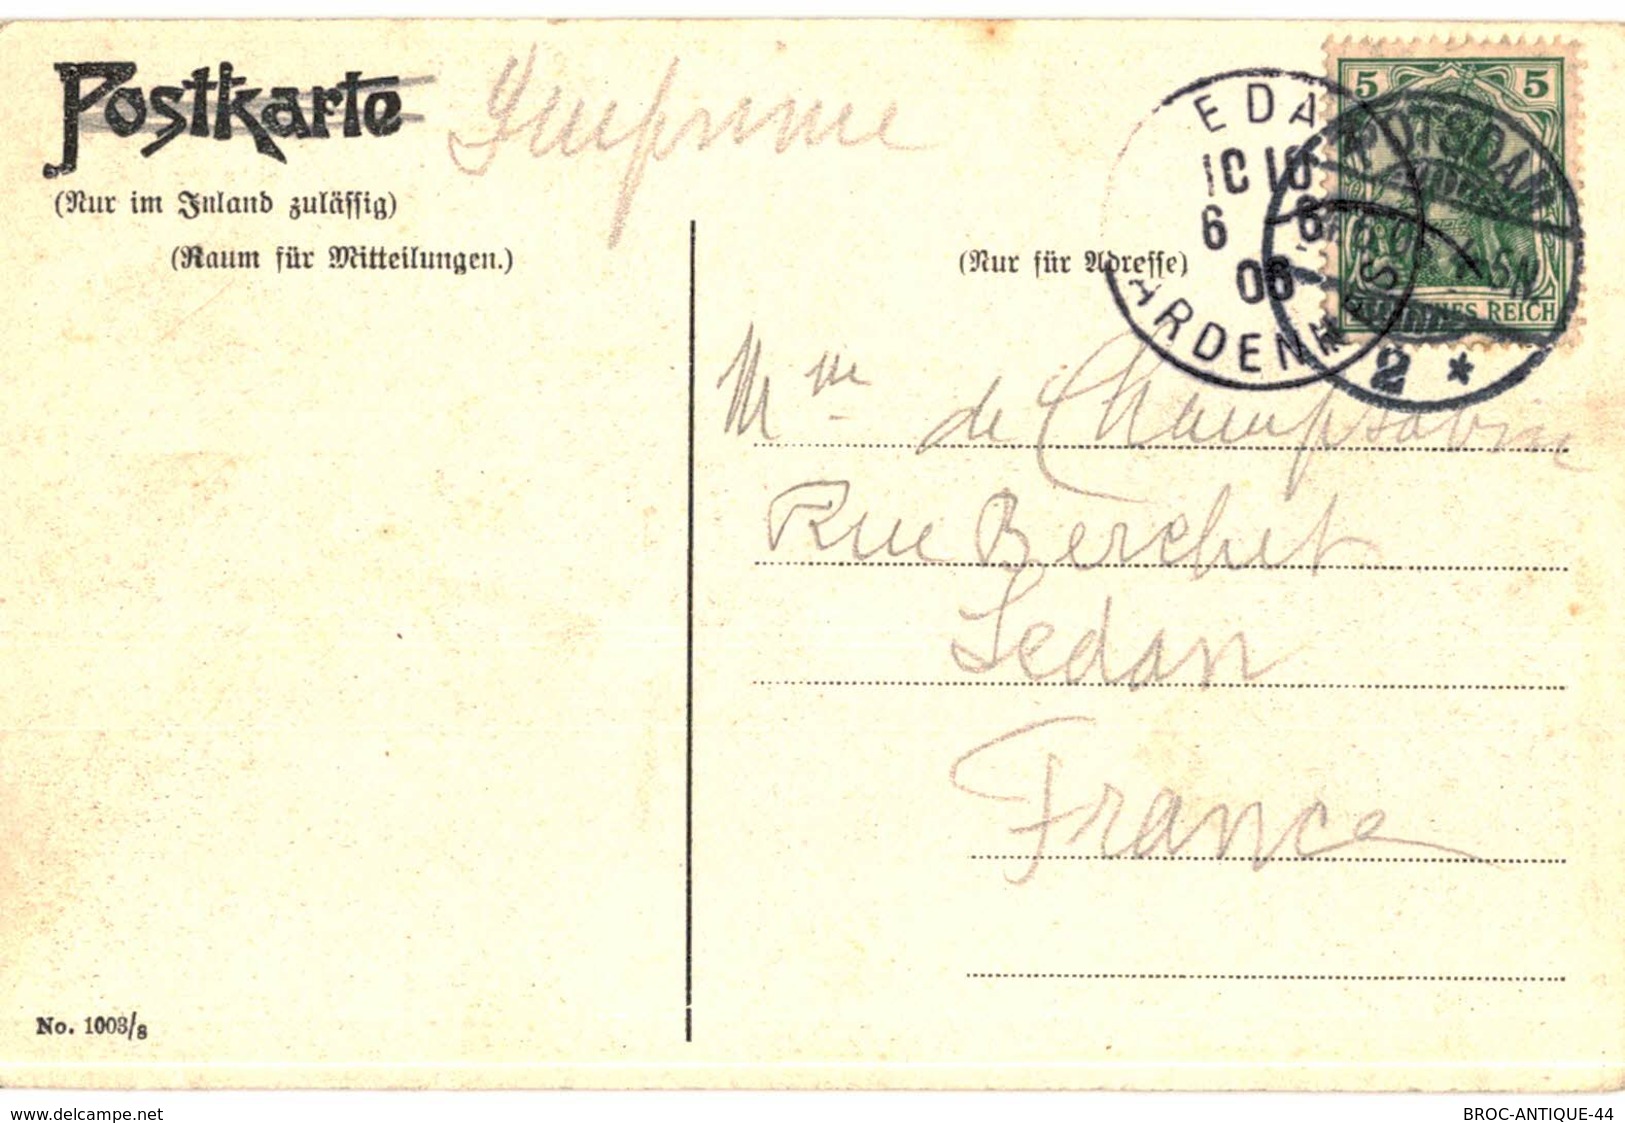 Postkarte Imprime
(Nur im Inland zulässig)
(Raum für Mitteilungen.)
(Nur für Adresse)
EDA
ARDENN
10 6
6
06
5 5
POTSDAM
REICH
2 *
Mme de Champsavin
Rue Berchet
Sedan
France
No. 1003/8
delcampe.net
BROC-ANTIQUE-44